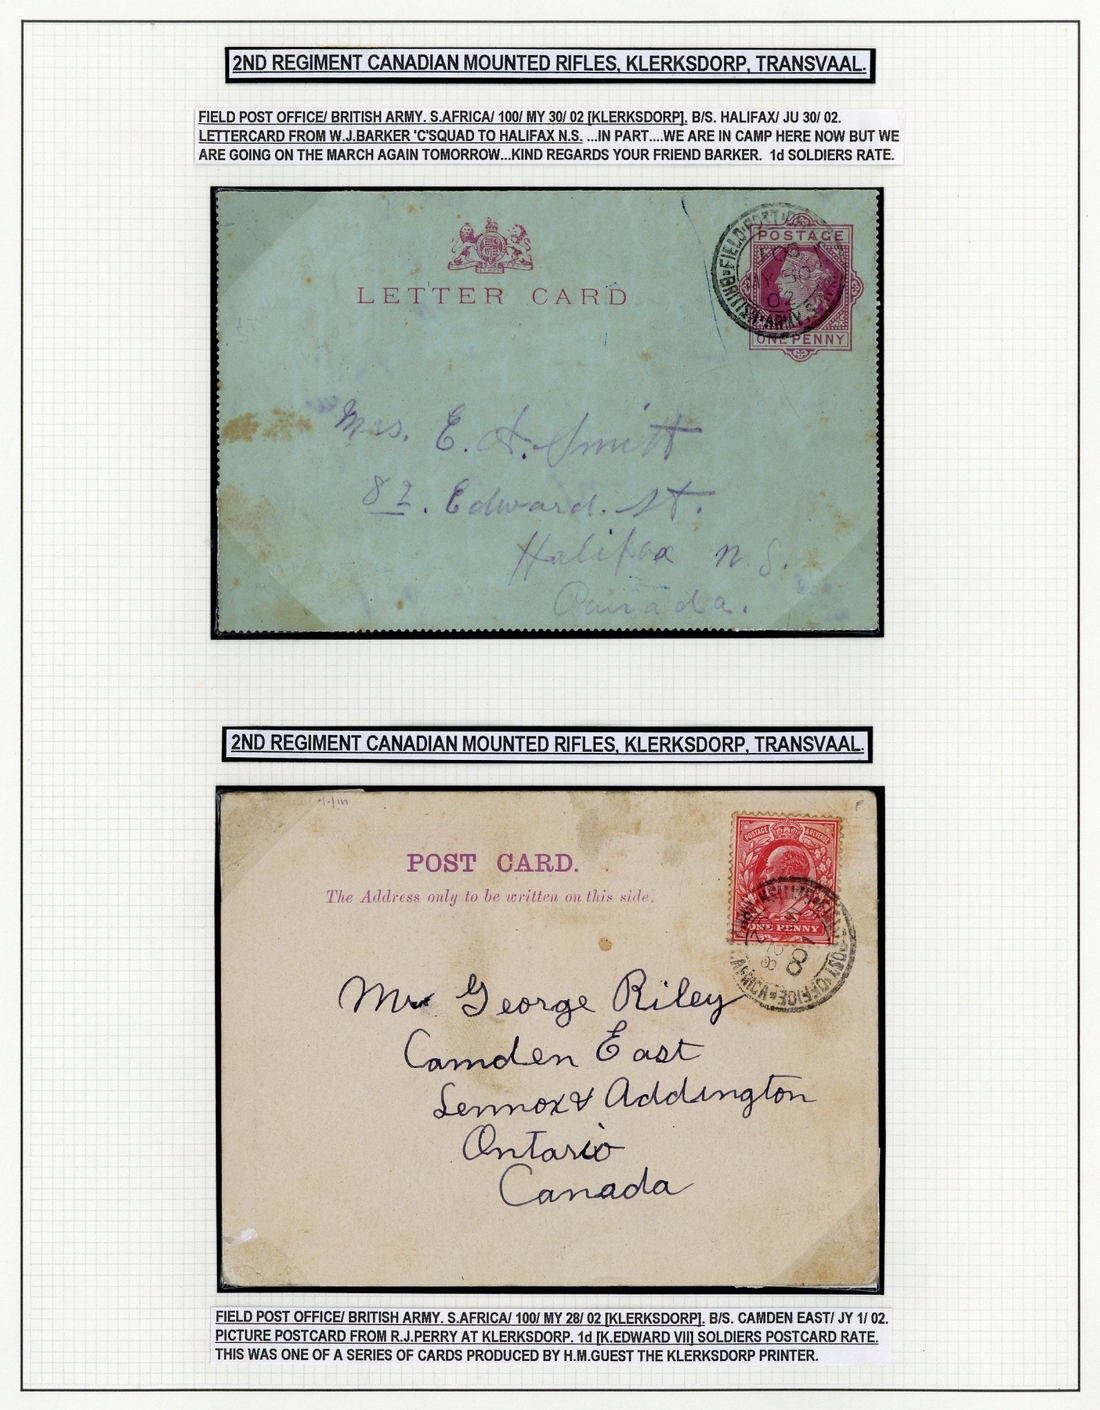 2ND REGIMENT CANADIAN MOUNTED RIFLES, KLERKSDORP, TRANSVAAL.
FIELD POST OFFICE/ BRITISH ARMY. S.AFRICA/ 100/ MY 30/ 02 [KLERKSDORP]. B/S. HALIFAX/ JU 30/ 02.
LETTERCARD FROM W.J.BARKER 'C'SQUAD TO HALIFAX N.S. ...IN PART....WE ARE IN CAMP HERE NOW BUT WE
ARE GOING ON THE MARCH AGAIN TOMORROW...KIND REGARDS YOUR FRIEND BARKER. 1d SOLDIERS RATE.
LETTER CARD
POSTAGE
ONE PENNY
FIELD POST OFFICE
BRITISH ARMY S.
100
MY 30
02
Mrs. E. A. Smith
82. Edward. St.
Halifax N.S.
Canada.
2ND REGIMENT CANADIAN MOUNTED RIFLES, KLERKSDORP, TRANSVAAL.
POST CARD.
The Address only to be written on this side.
POSTAGE & REVENUE
ONE PENNY
POST OFFICE
AFRICA
Mr George Riley
Camden East
Lennox & Addington
Ontario
Canada
FIELD POST OFFICE/ BRITISH ARMY. S.AFRICA/ 100/ MY 28/ 02 [KLERKSDORP]. B/S. CAMDEN EAST/ JY 1/ 02.
PICTURE POSTCARD FROM R.J.PERRY AT KLERKSDORP. 1d [K.EDWARD VII] SOLDIERS POSTCARD RATE.
THIS WAS ONE OF A SERIES OF CARDS PRODUCED BY H.M.GUEST THE KLERKSDORP PRINTER.